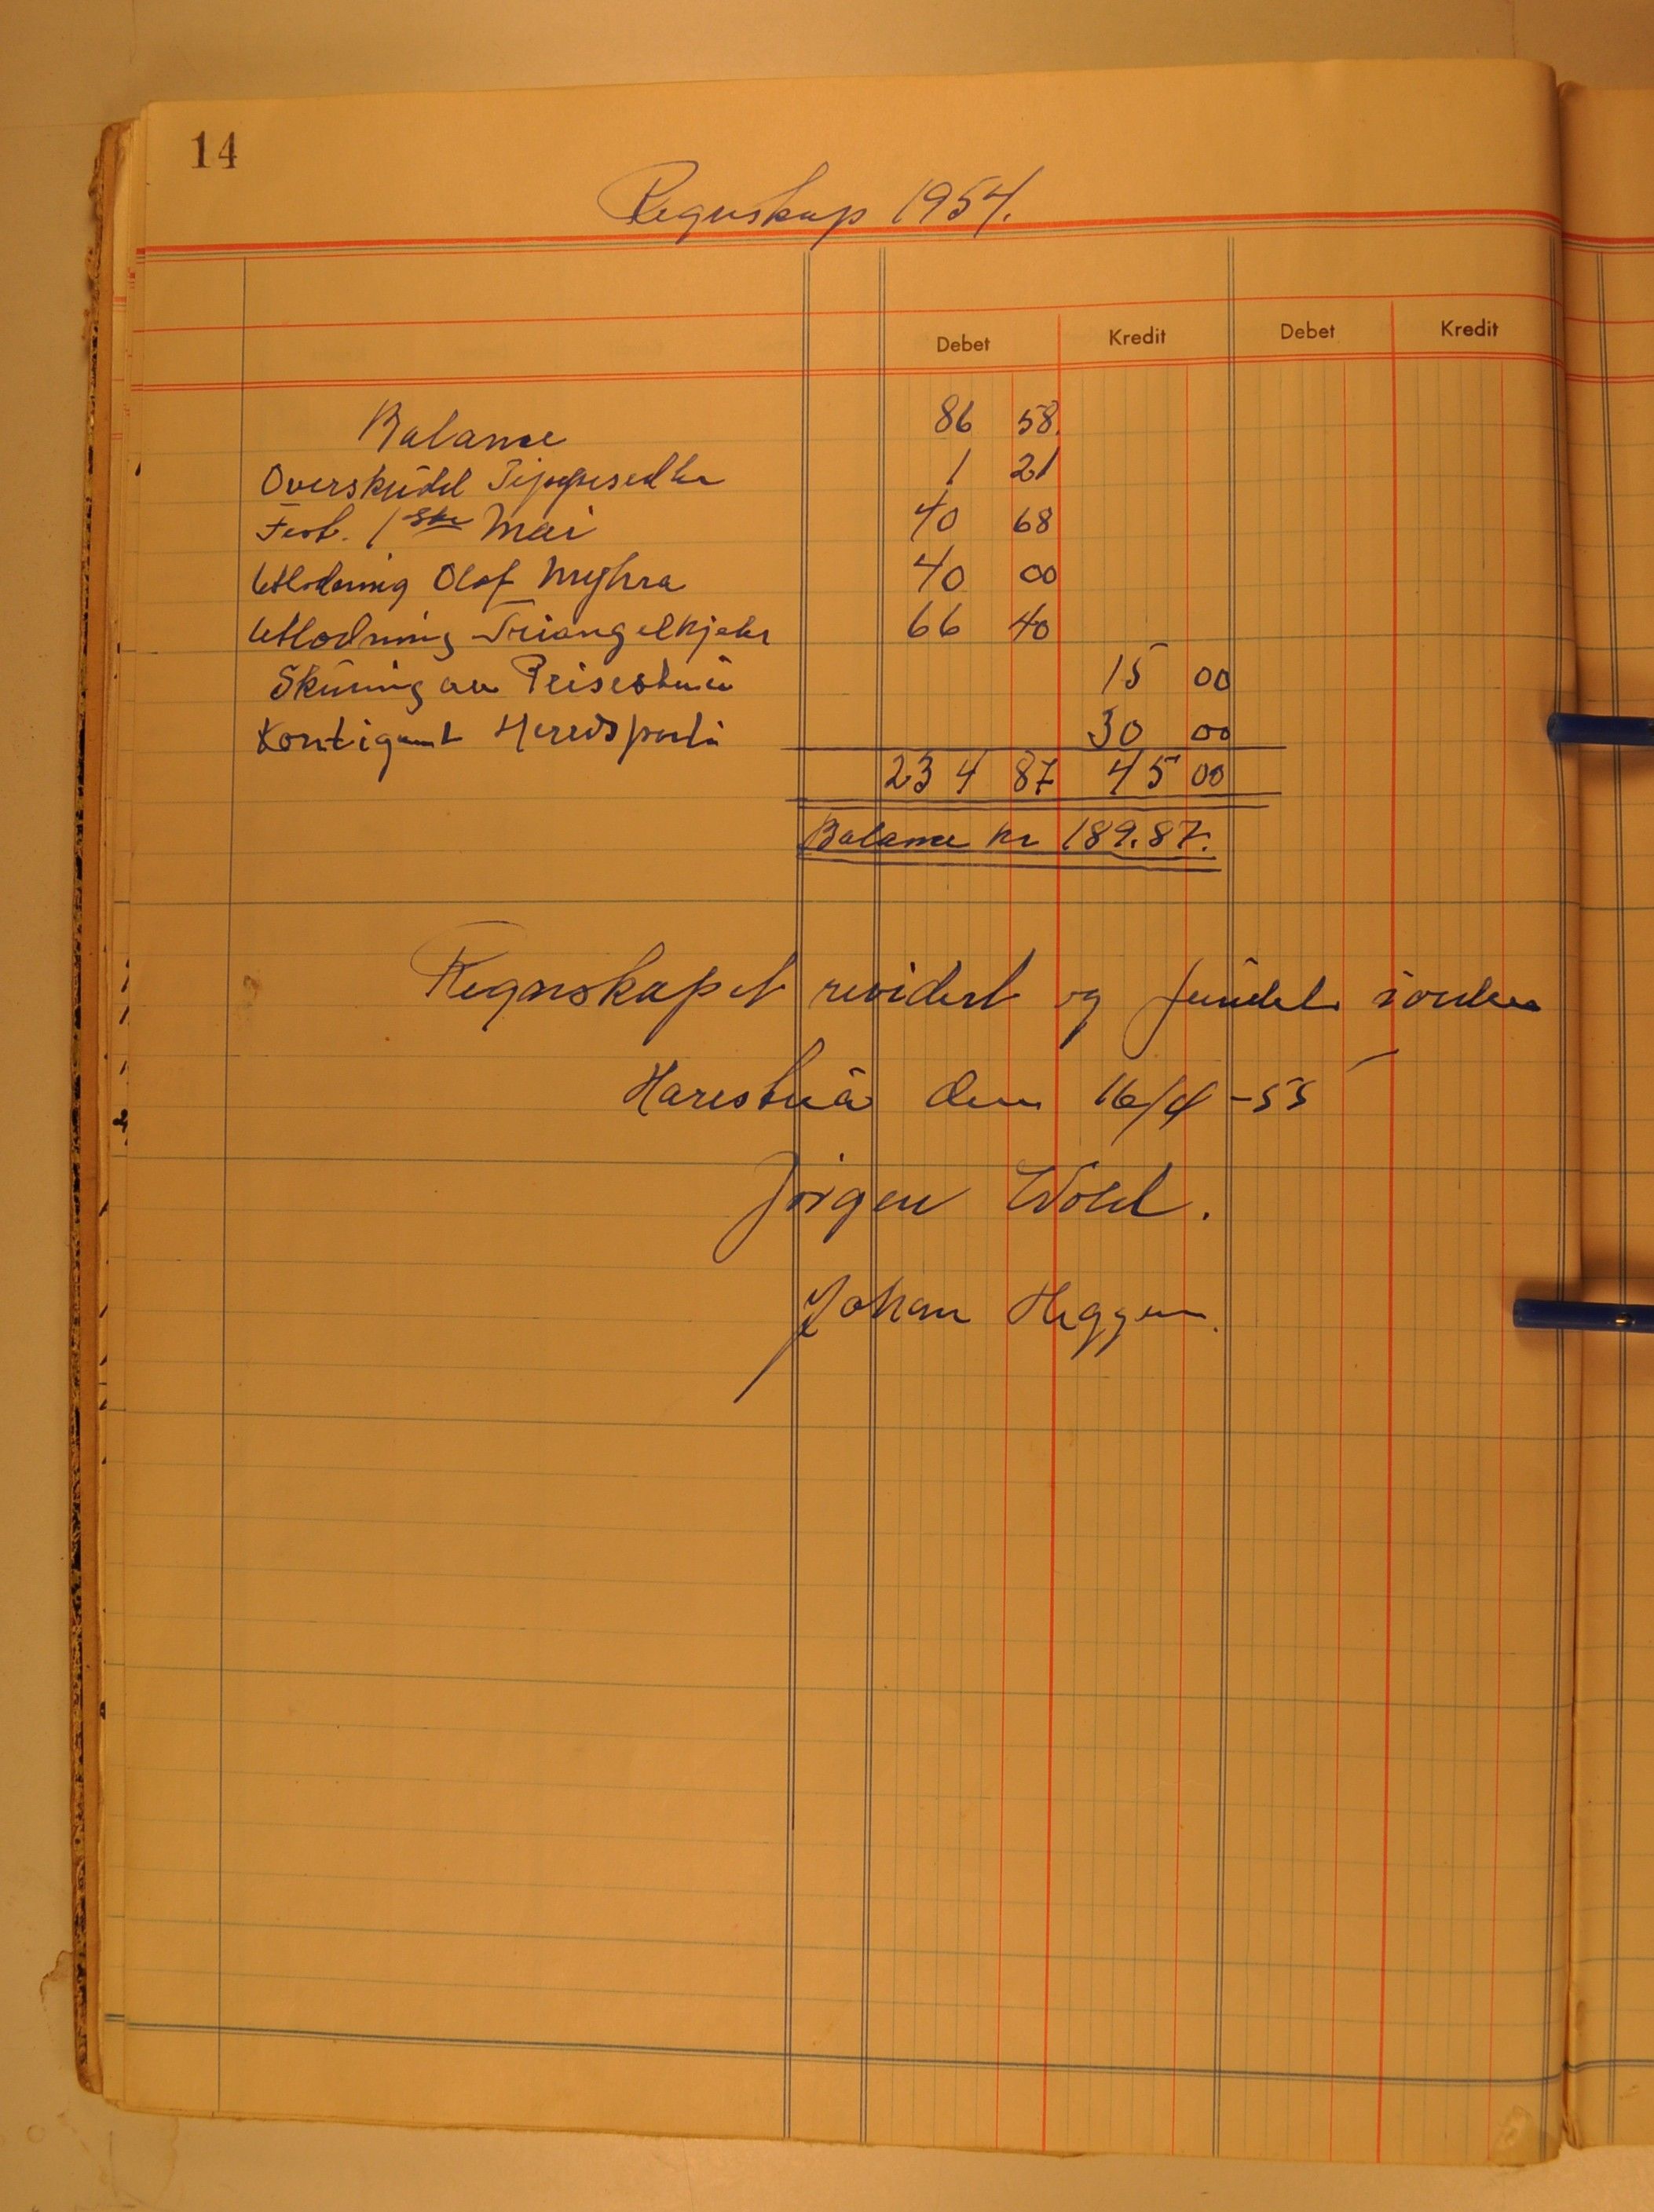 14
Regnskap 1954.
Debet Kredit Debet Kredit
Balanse 86 58.
Overskudd Tippesedler 1 21
Fest. 1ste Mai 40 68
Utlodning Olaf Myhra 40 00
Utlodning Triangelkjeks 66 40
Skuring av 15 00
Kontigent Herredsparti 30 00
234 87 45 00
Balanse kr 189.87.
Regnskapet revidert og fundet i orden
Harestua den 16/4 -55
Jørgen Wold.
Johan Heggen.